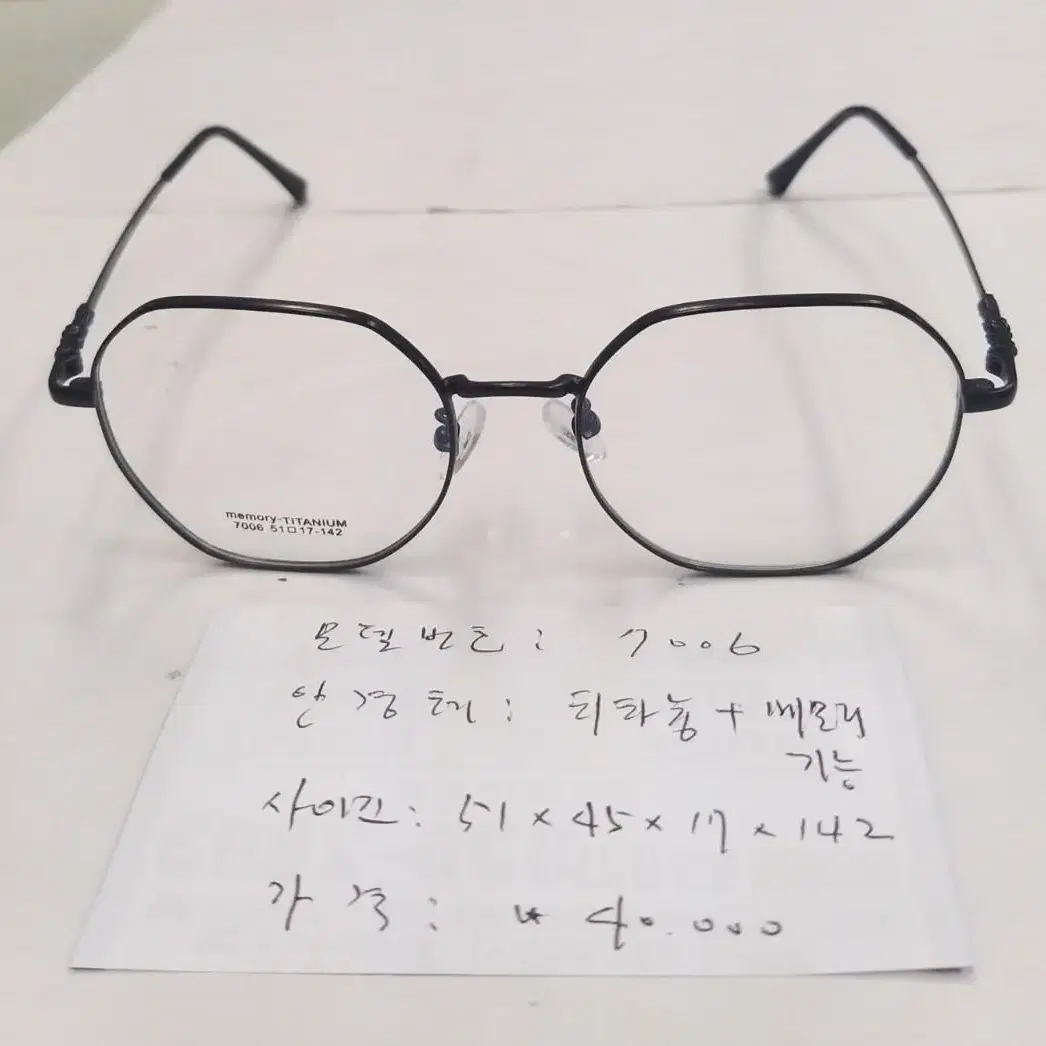 memory-TITANIUM
7006 51□17-142
모델번호: 7006
안경테: 티타늄 + 메모리
기능
사이즈: 51 x 45 x 17 x 142
가격: ₩ 40.000